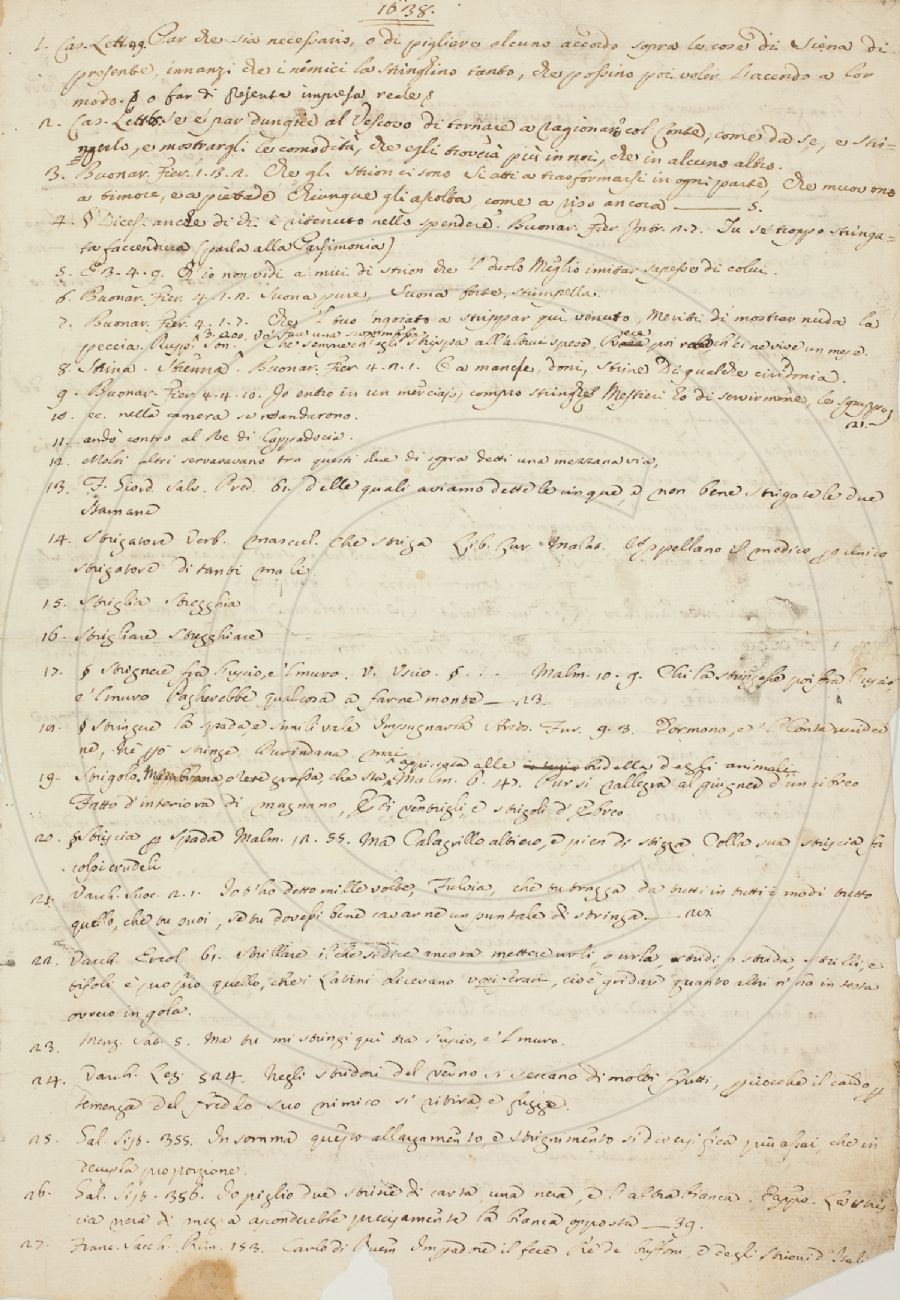 1638.
1. Cas. Lett. 49. Par che sia necessario, o di pigliare alcuno accordo sopra le cose di Siena di
presente, innanzi che i nimici la stringhino tanto, che possino poi voler l'accordo a lor
modo. § o far di presente impresa reale §
2. Cas. Lett. Se e' par dunque al Vescovo di tornare a ragionar col Conte, come da se, e stri-
ngerlo, e mostrargli le comodità, che egli troverà più in noi, che in alcuno altro.
3. Buonar. Fier. 1. 3. 2. Che gli strion ci sono Si atti a trasformarsi in ogni parte, Che muovono
a timore, e a pietade Chiunque gli ascolta, come a riso ancora 5.
4. § Dicesi anche di chi è ritenuto nello spendere. Buonar. Fier. Intr. 2. 7. Tu se' troppo stringa-
ta faccendiera (parla alla Parsimonia)
5. E 3. 4. 9. Ch'io non vidi a' miei di strion che 'l duolo Meglio imitar sapesse di colui.
6. Buonar. Fier. 4. 1. 2. Suona pure, Suona forte, strimpella.
7. Buonar. Fier. 4. 1. 7. Che 'l tuo 'ngoiato a strippar qui venuto, Meriti di mostrar nuda la
peccia. Rupp. Son. Che sempre ch'egli strippa all'altrui spese, poi ch'ei ne vive un mese.
8. Strina. Strenna. Buonar. Fier. 4. 2. 1. E a mance, doni, strine Di qualche cividonia.
9. Buonar. Fier. 4. 4. 10. Io entro in un merciaio, compro stringhe Mestieri Eo di servirmene, le sgruppo
21.
10. ec. nella camera se n'andarono.
11. andò contro al Re di Cappadocia.
12. Molti altri servavano tra questi due di sopra detti una mezzana via,
13. F. Giord. Salv. Pred. 61. delle quali aviamo dette le cinque, e non bene strigate le due
stamane
14. Strigatore Verb. mascul. Che striga Lib. Cur. Malat. Appellano il medico unico
strigatore di tanti mali
15. Striglia Stregghia
16. Strigliare Stregghiare
17. § Strignere fra l'uscio, e 'l muro. V. Uscio. §. . . . Malm. 10. 9. Chi la stringesse poi fra l'uscio,
e 'l muro Pagherebbe qualcosa a farne monte 23.
18. § Stringer la spada, e simili vale Impugnarla Ariost. Fur. 9. 3. Normano, e 'l Conte
ne, Nè può stringer Durindana mai
19. Strigolo. Membrana, o rete grassa, che sta appiccata alle budella degli animali. Malm. 6. 47. Pur si rallegra al giugner d'un cibreo
Fatto d'interiora di magnano, E di ventrigli, e strigoli d'Ebreo
20. § Striscia per Spada Malm. 12. 55. Ma Calagrillo altiero, e pien di stizza Colla sua striscia fa
colpi crudeli
21. Varch. Suoc. 2. 1. Io t'ho detto mille volte, Fulvia, che tu tragga da tutti in tutti i modi tutto
quello, che tu puoi, se tu dovessi bene cavarne un puntale di stringa.
22. Varch. Ercol. 61. Strillare il che si dice ancora mettere urli, o urla, stridi o strida, strilli, e
tifoli è proprio quello, che i Latini dicevano vociferari, cioè gridare quanto altri n'ha in testa
ovvero in gola.
23. Menz. Sat. 5. Ma tu mi stringi qui tra l'uscio, e 'l muro.
24. Varch. Lez. 524. Negli stridori del verno si seccano di molti frutti, perocchè il caldo per
temenza del freddo suo nimico si ritira, e fugge.
25. Gal. Sist. 355. In somma questo allargamento, e strignimento si diversifica più assai, che in
decupla proporzione.
26. Gal. Sist. 356. Io piglio due strisce di carta, una nera, e l'altra bianca. E appr. La stris-
cia nera di mezzo asconderebbe precisamente la bianca opposta 39.
27. Franc. Sacch. Rim. 153. Carlo di Buem Impadrè il fece Re de' buffoni, e degli strioni d'Itali